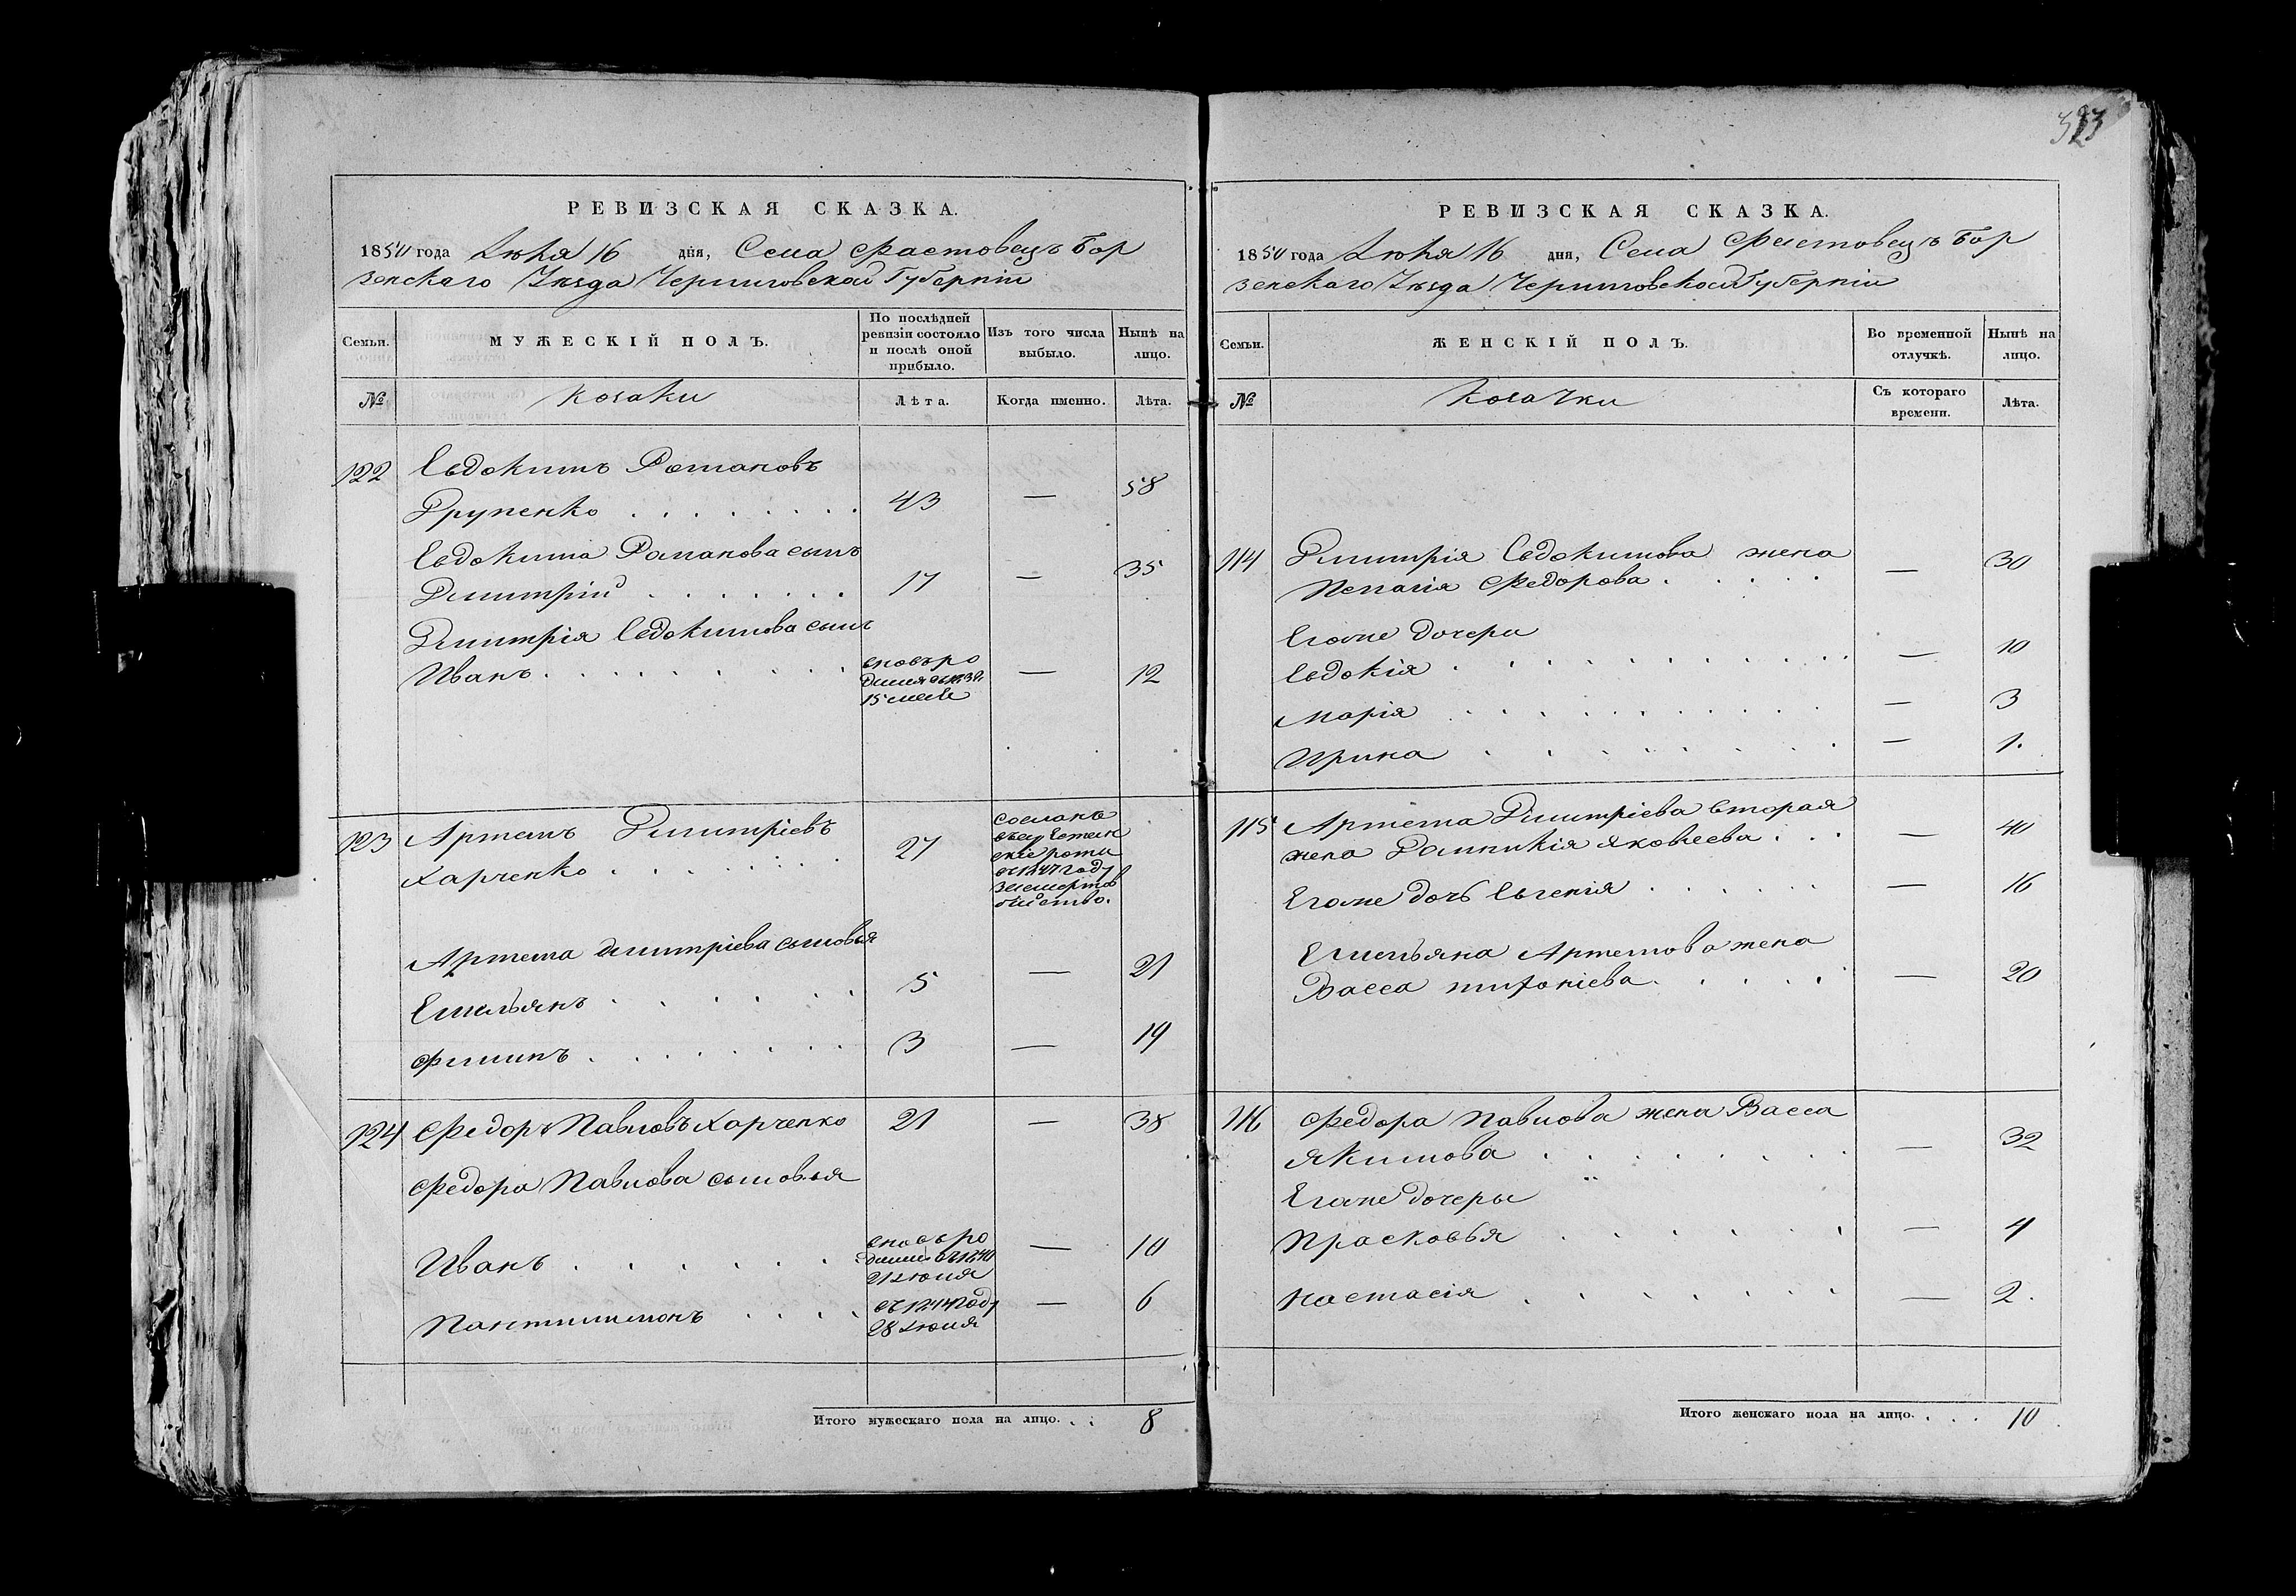 323
РЕВИЗСКАЯ СКАЗКА.
1850 года Июня 16 дня, Села Фастовецъ Бор
зенскаго Уѣзда Черниговской Губерніи
Семьи.
МУЖЕСКІЙ ПОЛЪ.
По послѣдней ревизіи состояло и послѣ оной прибыло.
Изъ того числа выбыло.
Нынѣ на лицо.
№
козаки
Лѣта.
Когда именно.
Лѣта.
122 Евдокимъ Романовъ
Друпенко 43 — 58
Евдокима Романова сынъ
Димитрій 17 — 35
Димитрія Евдокимова сынъ
Иванъ
вновь ро
15
— 12
123 Артемъ Димитріевъ
Харченко 27
сосланъ
въ арестан
скіе роты
въ 1847 году
за смерто
бійство.
Артема Димитріева сыновья
Емельянъ 5 — 21
Филипъ 3 — 19
124 Федоръ Павловъ Харченко 21 — 38
Федора Павлова сыновья
Иванъ
вновь ро
дился въ 1840
21 июня
— 10
Пантилимонъ
въ 1844 году
28 июня
— 6
Итого мужескаго пола на лицо. 8
РЕВИЗСКАЯ СКАЗКА.
1850 года Июня 16 дня, Села Фастовецъ Бор
зенскаго Уѣзда Черниговской Губерніи
Семьи.
ЖЕНСКІЙ ПОЛЪ.
Во временной отлучкѣ.
Нынѣ на лицо.
№
козачки
Съ котораго времени.
Лѣта.
114 Димитрія Евдокимова жена
Пелагія Федорова — 30
Егоже дочери
Евдокія — 10
Марія — 3
Ирина — 1.
115 Артема Димитріева вторая
жена Домникія Яковлева — 40
Егоже дочь Евгенія — 16
Емельяна Артемова жена
Васса Тихоніева — 20
116 Федора Павлова жена Васса
Якимова — 32
Егоже дочеры
Прасковья — 4
Настасія — 2.
Итого женскаго пола на лицо. 10